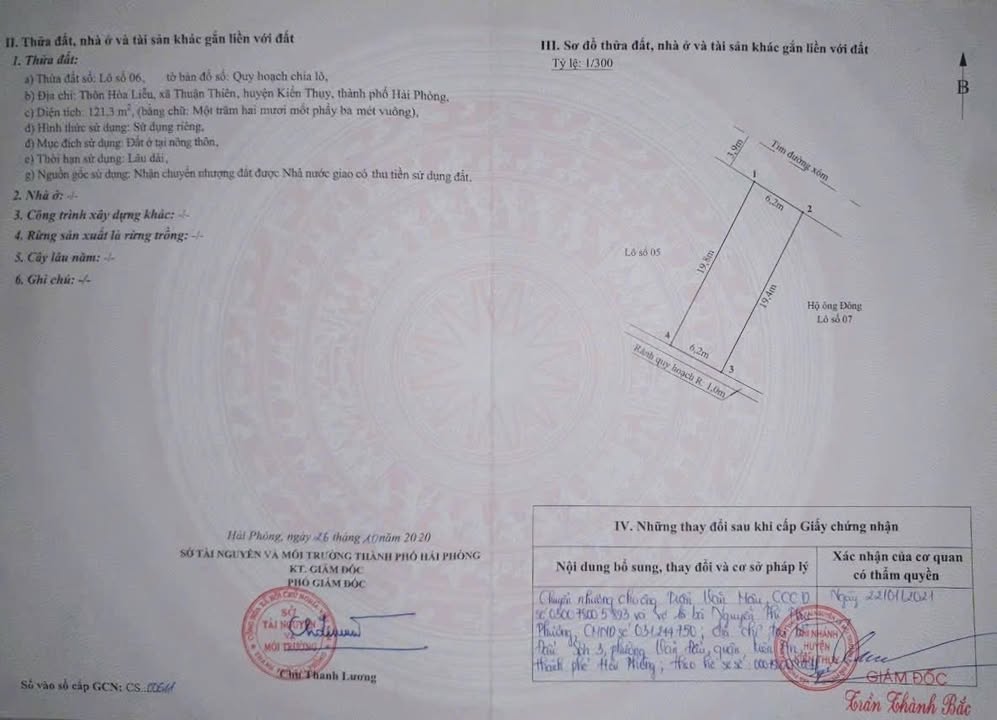 II. Thửa đất, nhà ở và tài sản khác gắn liền với đất
1. Thửa đất:
a) Thửa đất số: Lô số 06, tờ bản đồ số: Quy hoạch chia lô,
b) Địa chỉ: Thôn Hòa Liễu, xã Thuận Thiên, huyện Kiến Thụy, thành phố Hải Phòng,
c) Diện tích: 121,3 m², (bằng chữ: Một trăm hai mươi mốt phẩy ba mét vuông),
d) Hình thức sử dụng: Sử dụng riêng,
đ) Mục đích sử dụng: Đất ở tại nông thôn,
e) Thời hạn sử dụng: Lâu dài,
g) Nguồn gốc sử dụng: Nhận chuyển nhượng đất được Nhà nước giao có thu tiền sử dụng đất.
2. Nhà ở: -/-
3. Công trình xây dựng khác: -/-
4. Rừng sản xuất là rừng trồng: -/-
5. Cây lâu năm: -/-
6. Ghi chú: -/-
Hải Phòng, ngày 26 tháng 10 năm 2020
SỞ TÀI NGUYÊN VÀ MÔI TRƯỜNG THÀNH PHỐ HẢI PHÒNG
KT. GIÁM ĐỐC
PHÓ GIÁM ĐỐC
SỞ
TÀI NGUYÊN
VÀ
MÔI TRƯỜNG
Chu Thanh Lương
Số vào sổ cấp GCN: CS
III. Sơ đồ thửa đất, nhà ở và tài sản khác gắn liền với đất
Tỷ lệ: 1/300
B
3,9m
Tim đường xóm
1
6,2m
2
Lô số 05
19,8m
19,4m
Hộ ông Đông
Lô số 07
4
6,2m
3
Rãnh quy hoạch R. 1,0m
IV. Những thay đổi sau khi cấp Giấy chứng nhận
Nội dung bổ sung, thay đổi và cơ sở pháp lý
Xác nhận của cơ quan
có thẩm quyền
Chuyển nhượng cho ông Văn CCCD
số và vợ là bà Nguyễn Thị
Phương, CMND số 031244750; địa chỉ tại
số 3, phường quận Kiến An,
thành phố Hải Phòng; theo hồ sơ số
Ngày 22/01/2021
CHI NHÁNH
HUYỆN
KIẾN THỤY
GIÁM ĐỐC
Trần Thành Bắc